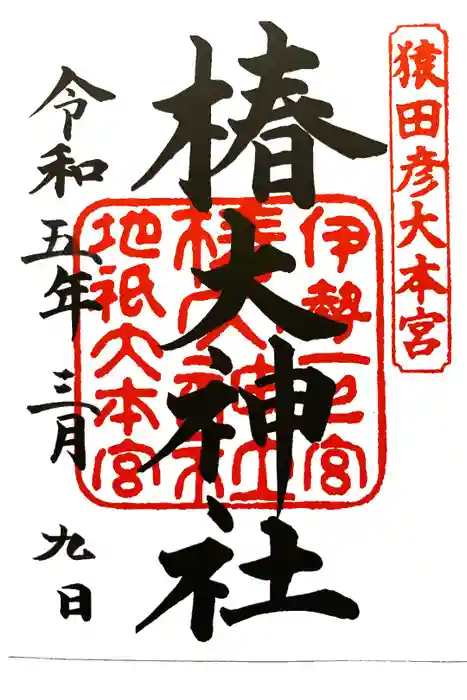 猿田彦大本宮
椿大神社
伊勢一之宮
椿大神社
地祇大本宮
令和五年三月九日